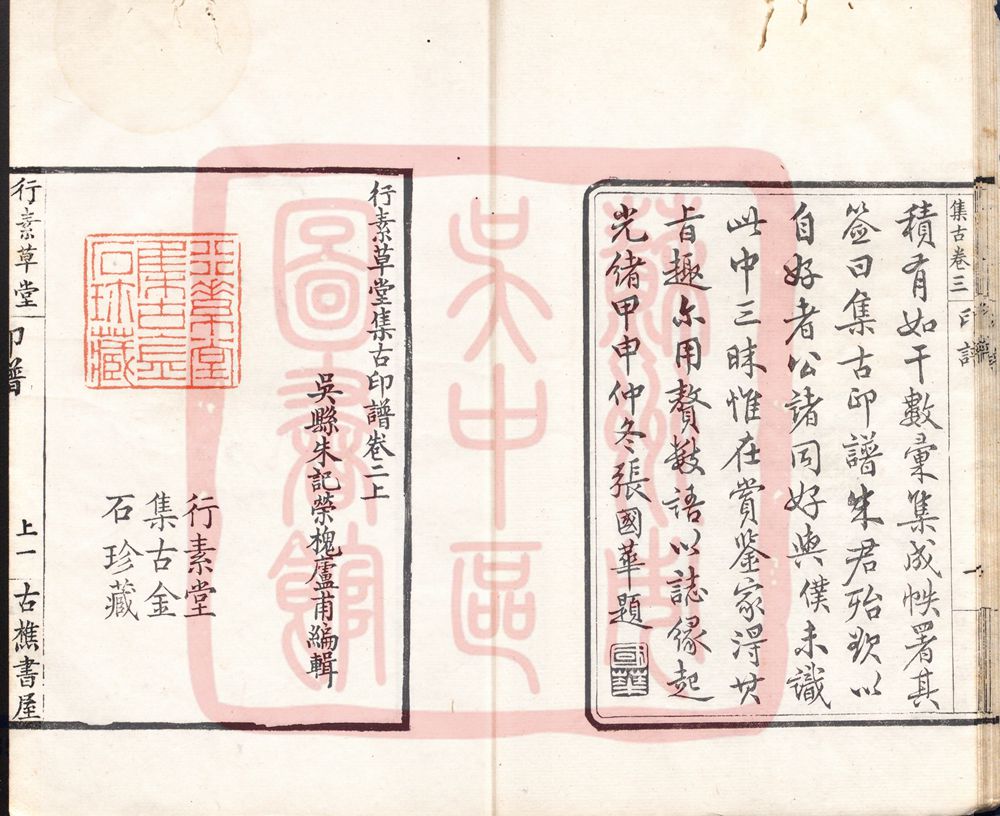 集古卷三
印譜
一
積有如干數彙集成帙署其
簽曰集古印譜朱君殆欲以
自好者公諸同好與僕未識
此中三昧惟在賞鑒家得其
旨趣尓用贅數語以誌緣起
光緒甲申仲冬張國華題
國華
蘇州市
吳中區
圖書館
行素草堂集古印譜卷二上
吳縣朱記榮槐廬甫編輯
行素堂
集古金
石珍藏
行素堂
集古金
石珍藏
行素草堂
印譜
上一
古樵書屋